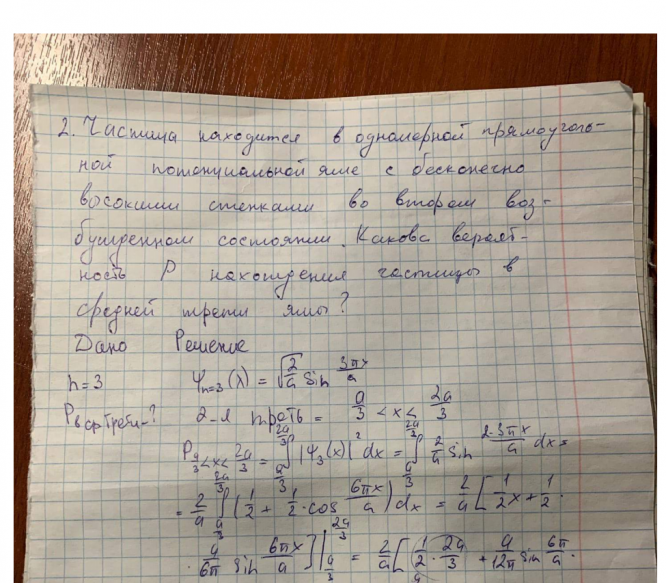 2. Частица находится в одномерной прямоуголь-
ной потенциальной яме с бесконечно
высокими стенками во втором воз-
бужденном состоянии. Какова вероят-
ность P нахождения частицы в
средней трети ямы?
Дано Решение
n=3 ψn=3(x) = √(2/a) sin 3πx/a
Pв ср трети-? 2-я треть = a/3 < x < 2a/3
P a/3<x<2a/3 = ∫_{a/3}^{2a/3} |ψ3(x)|² dx = ∫_{a/3}^{2a/3} 2/a sin 2·3πx/a dx =
= 2/a ∫_{a/3}^{2a/3} (1/2 + 1/2 · cos 6πx/a) dx = 2/a [1/2 x + 1/2 ·
· a/6π sin 6πx/a]|_{a/3}^{2a/3} = 2/a [1/2 · 2a/3 + a/12π sin 6π/a ·